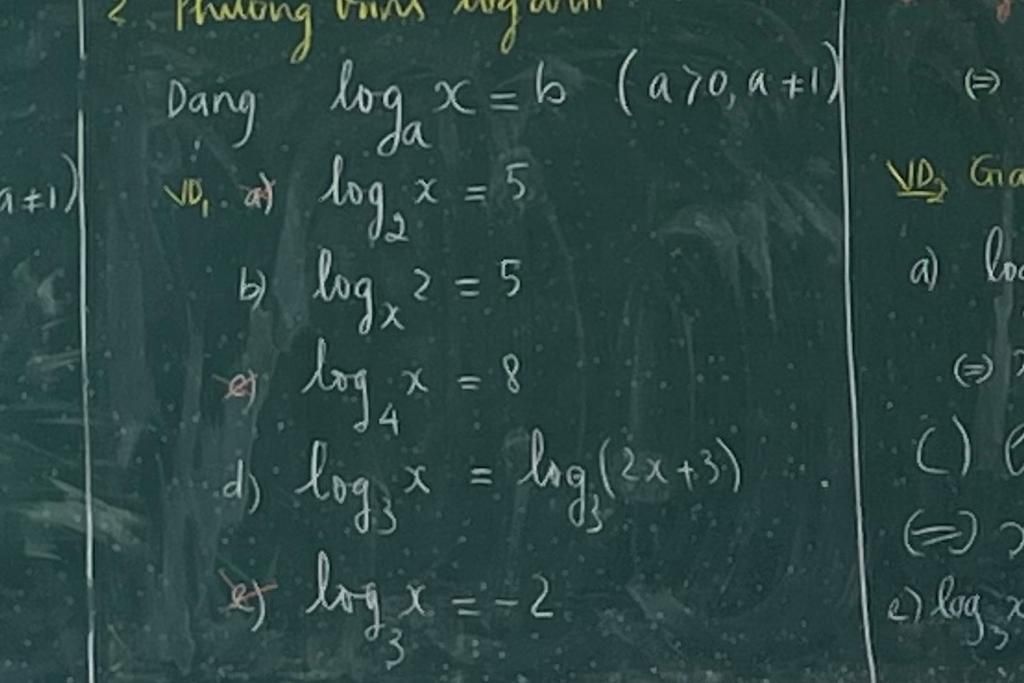 2. Phương trình logarit
Dạng log_a x = b (a>0, a≠1)
a≠1)
VD₁. a) log₂ x = 5
b) logₓ 2 = 5
c) log₄ x = 8
d) log₃ x = log₃(2x+3)
e) log₃ x = -2
(=)
VD₂ Giả
a) log
(=)
( ) (
(=) x
c) log₃ x